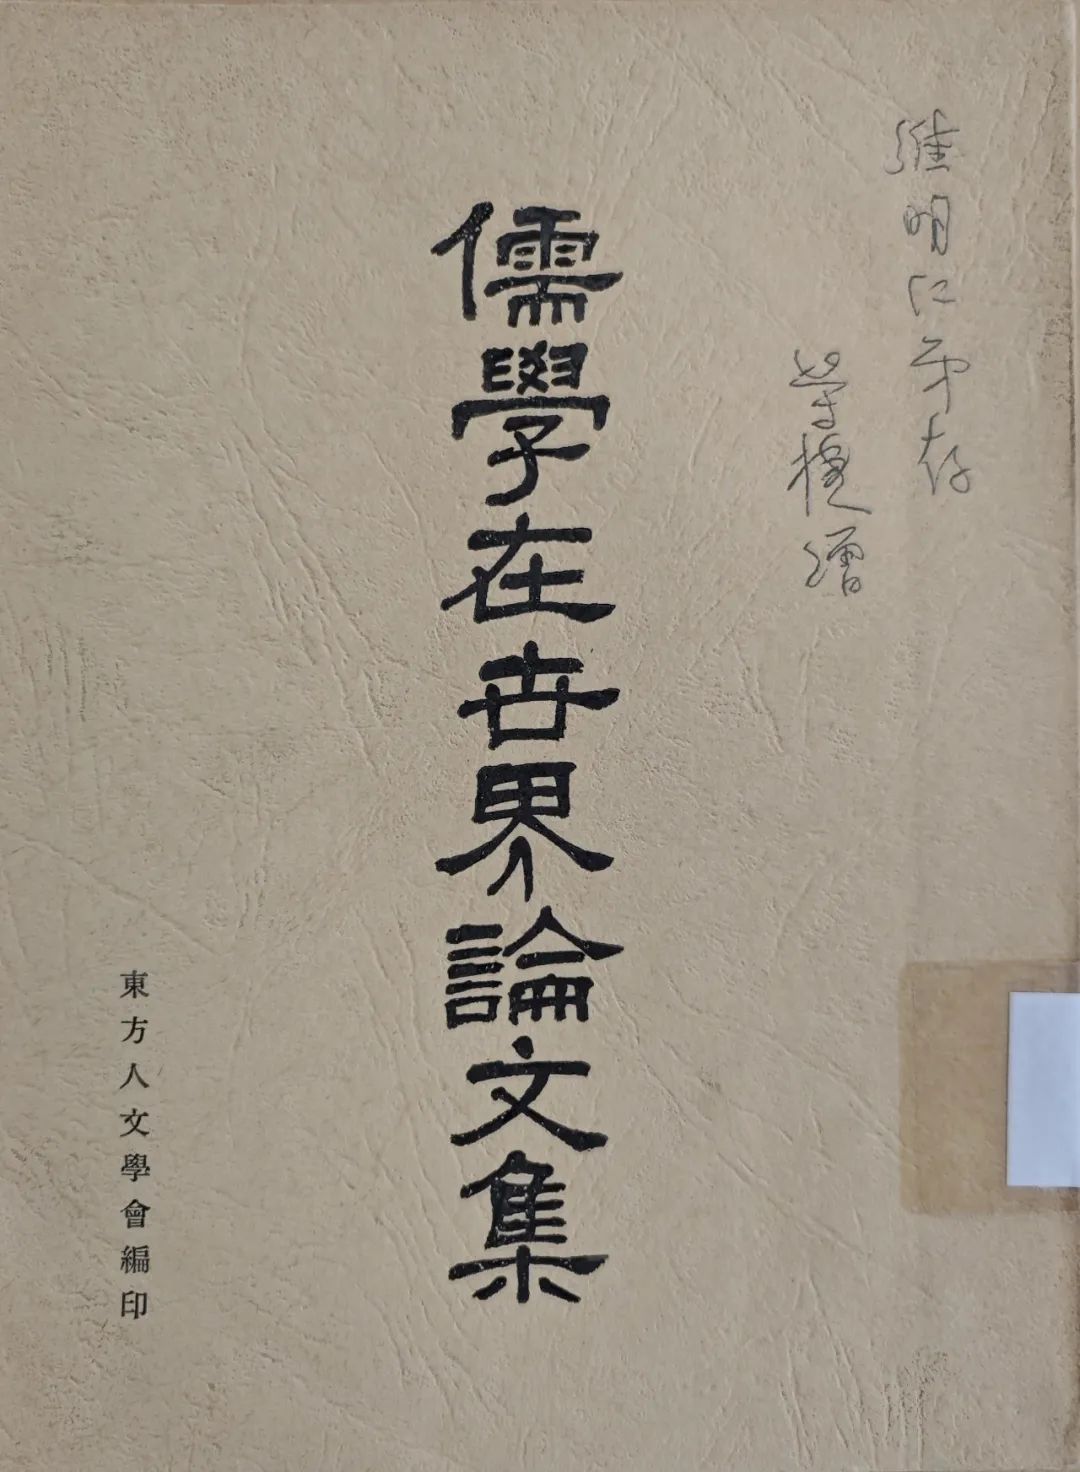 維明仁弟存
榮捷贈
儒學在世界論文集
東方人文學會編印